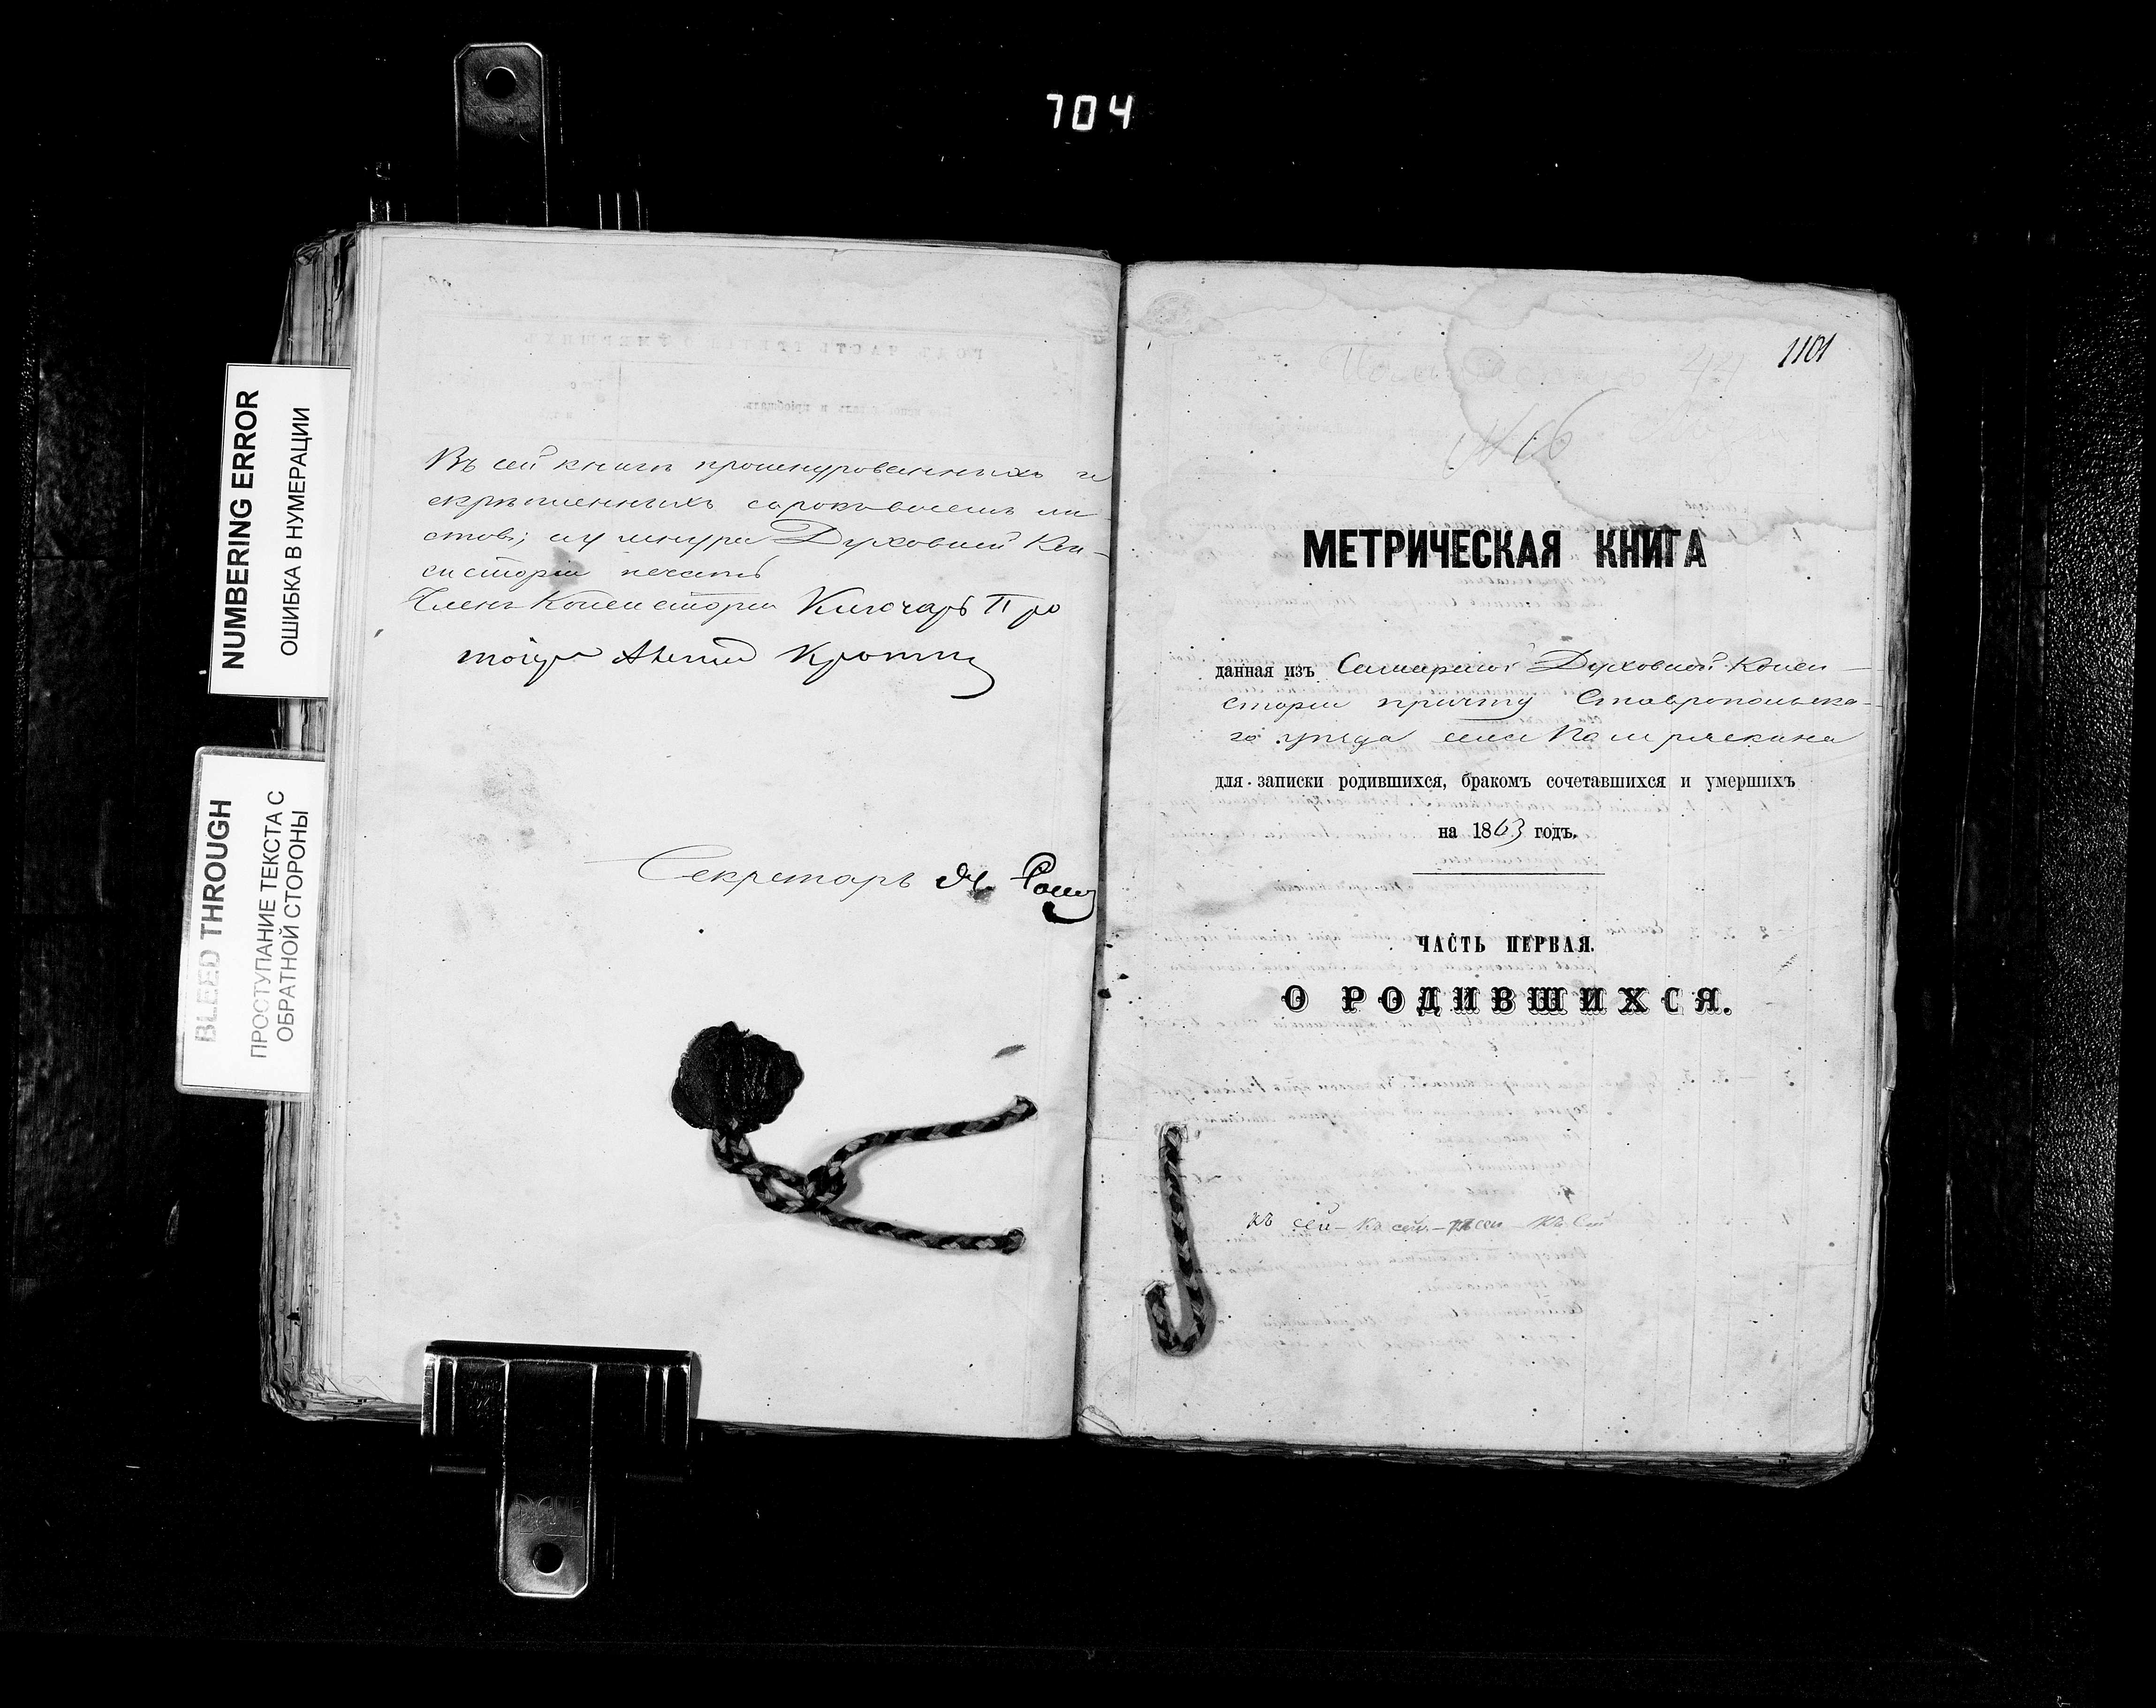 704
NUMBERING ERROR
ОШИБКА В НУМЕРАЦИИ
BLEED THROUGH
ПРОСТУПАНИЕ ТЕКСТА С
ОБРАТНОЙ СТОРОНЫ
Въ сей книгѣ прошнурованныхъ и
скрѣпленныхъ сорокъ восемь ли-
стовъ; у шнура Духовной Кон-
систоріи печать
Членъ Консисторіи Ключарь Про
тоіерей
Секретарь
1101
№ 16
МЕТРИЧЕСКАЯ КНИГА
данная изъ Самарской Духовной Конси-
сторіи причту Ставропольска-
го уѣзда села Помряскина
для записки родившихся, бракомъ сочетавшихся и умершихъ
на 1863 годъ.
ЧАСТЬ ПЕРВАЯ.
О РОДИВШИХСЯ.
къ сей